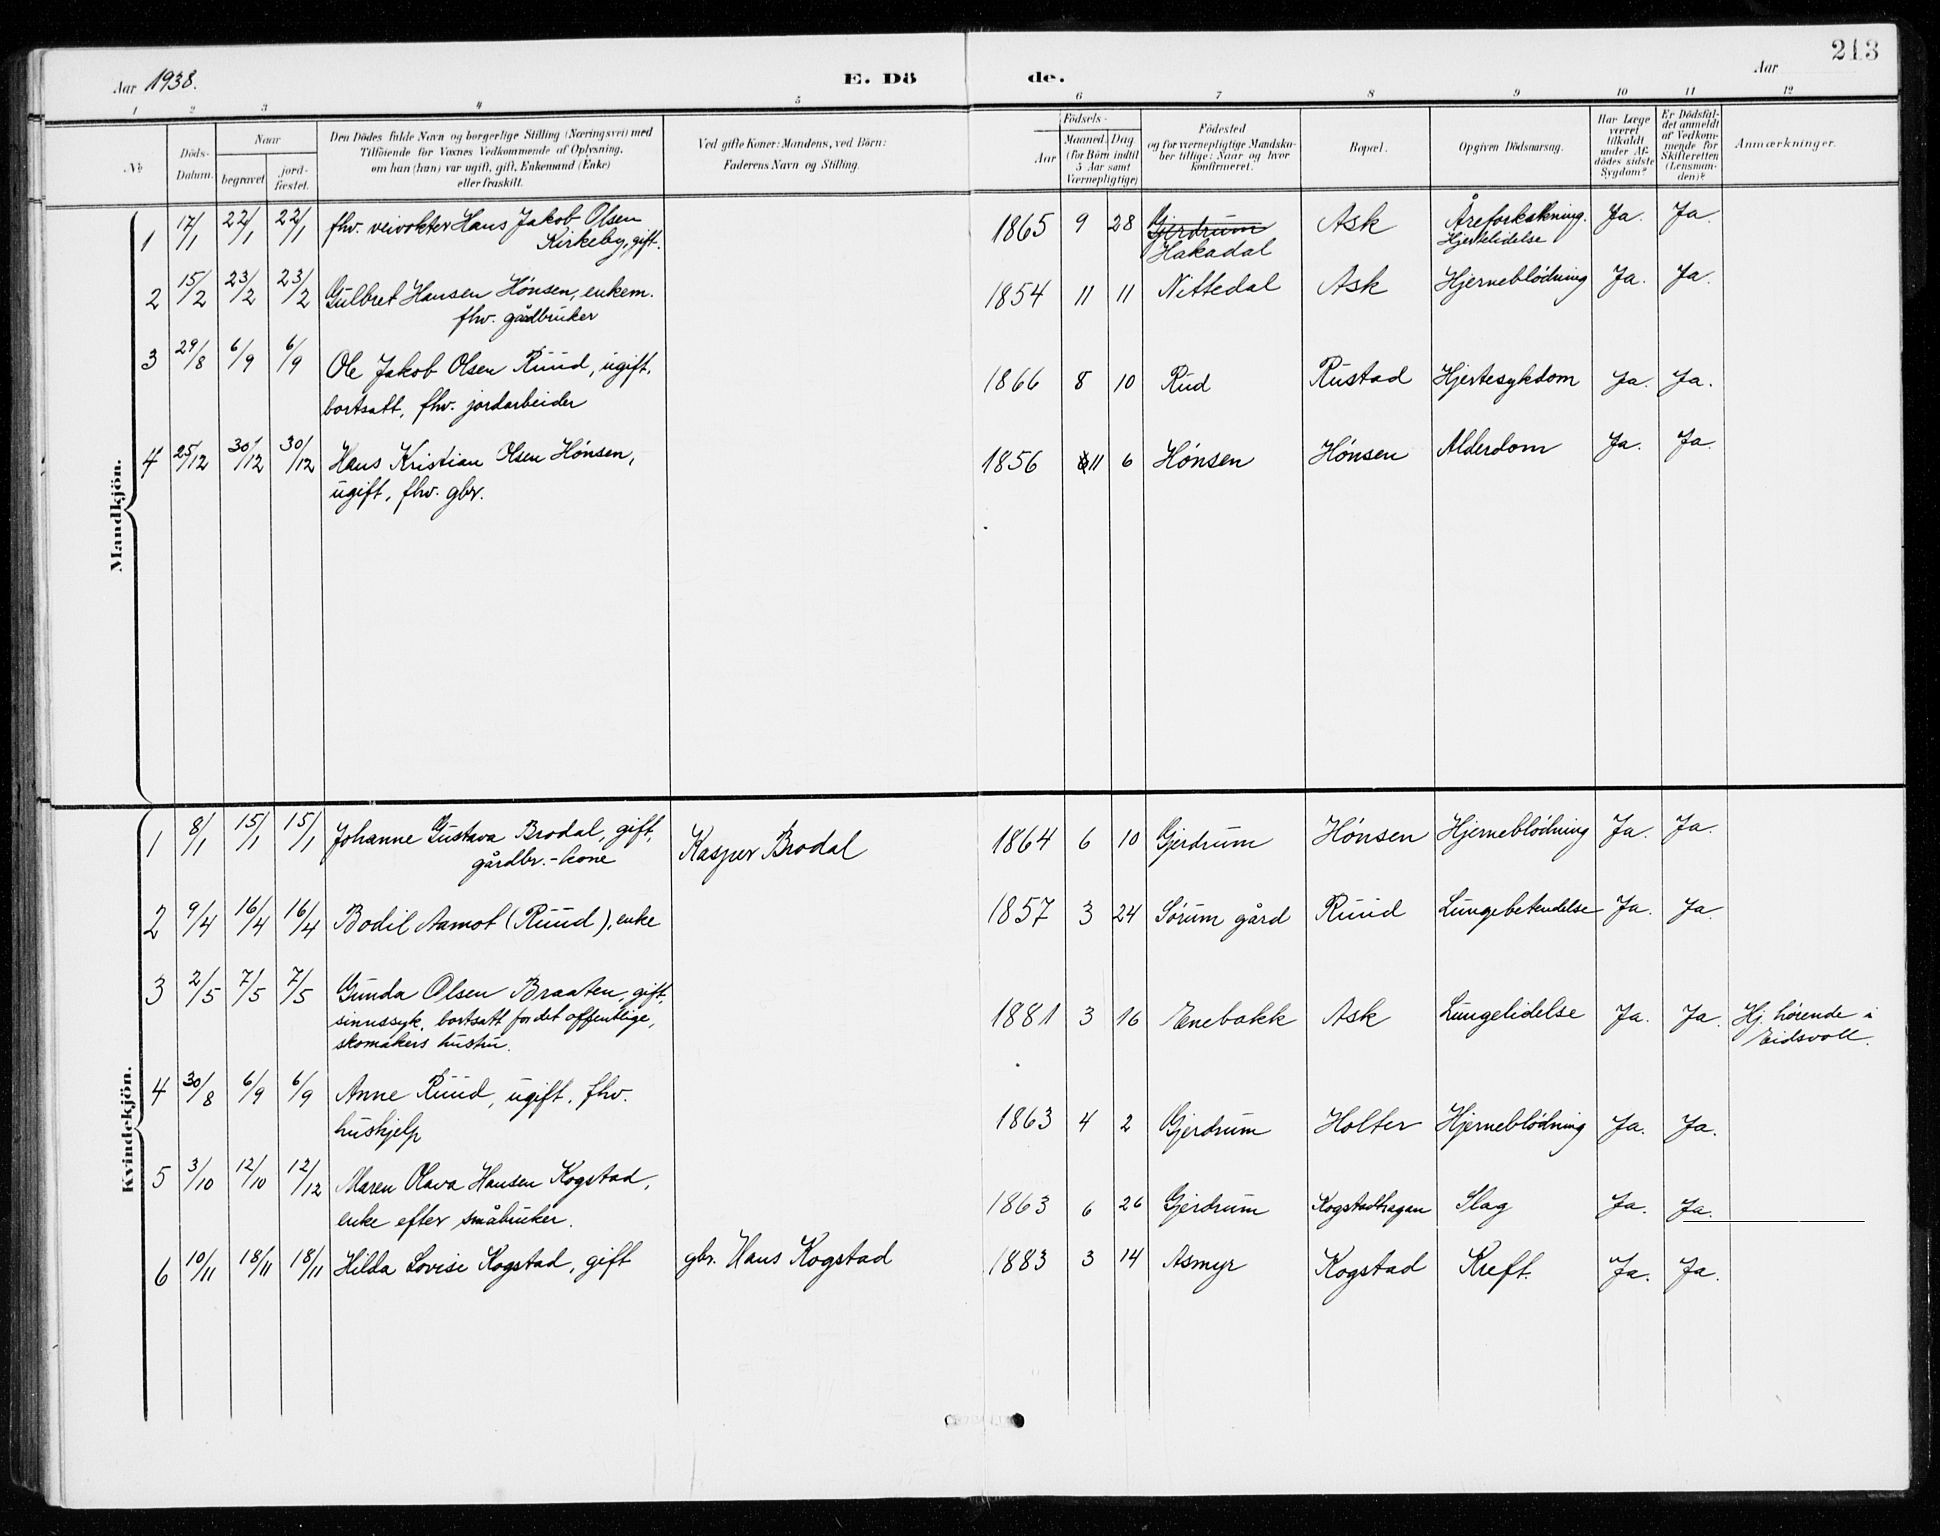 213
Aar 1938.
E. Dö de.
Aar
1 2 3 4 5 6 7 8 9 10 11 12
No
Döds-Datum.
Naar
begravet
jord-fæstet.
Den Dödes fulde Navn og borgerlige Stilling (Næringsvei) med
Tilföiende for Voxnes Vedkommende af Oplysning,
om han (hun) var ugift, gift, Enkemand (Enke)
eller fraskilt.
Ved gifte Koner: Mandens, ved Börn:
Faderens Navn og Stilling.
Födsels-
Aar
Maaned. Dag
(for Börn indtil
5 Aar samt
Værnepligtige)
Födested
og for værnepligtige Mandskaber tillige: Naar og hvor
konfirmeret.
Bopæl.
Opgiven Dödsaarsag.
Har Læge
været
tilkaldt
under Afdödes sidste
Sygdom?
Er Dödsfaldet anmeldt
af Vedkommende for
Skifteretten
(Lensmanden)?
Anmærkninger.
Mandkjön.
1 17/1 22/1 22/1 fhv. veivokter Hans Jakob Olsen 1865 9 28 Gjerdrum Ask Åreforkalkning. Ja. Ja.
Kirkeby, gift. Hakadal Hjertelidelse
2 15/2 23/2 23/2 Gulbret Hansen Hónsen, enkem. 1854 11 11 Nittedal Ask Hjerneblödning Ja. Ja.
fhv. gårdbruker
3 29/8 6/9 6/9 Ole Jakob Olsen Ruud, ugift, 1866 8 10 Rud Rustad Hjertesykdom Ja. Ja.
bortsatt, fhv. jordarbeider
4 25/12 30/12 30/12 Hans Kristian Olsen Hónsen, 1856 11 6 Hónsen Hónsen Alderdom Ja. Ja.
ugift, fhv. gbr.
Kvindekjön.
1 8/1 15/1 15/1 Johanne Gustava Brodal, gift, Kasper Brodal 1864 6 10 Gjerdrum Hónsen Hjerneblödning Ja. Ja.
gårdbr.-kone
2 9/4 16/4 16/4 Bodil Aamot (Ruud), enke 1857 3 24 Sórum gård Ruud Lungebetendelse Ja. Ja.
3 2/5 7/5 7/5 Gunda Olsen Braaten, gift, 1881 3 16 Enebakk Ask Lungelidelse Ja. Ja. Hj. hórende i
sinnssyk, bortsatt for det offentlige, Eidsvoll.
skomakers hustru.
4 30/8 6/9 6/9 Anne Ruud, ugift, fhv. 1863 4 2 Gjerdrum Holter Hjerneblödning Ja. Ja.
hushjelp
5 3/10 12/10 12/12 Maren Olava Hansen Kogstad, 1863 6 26 Gjerdrum Kogstadhagan Slag Ja. Ja.
enke efter småbruker.
6 10/11 18/11 18/11 Hilda Lovise Kogstad, gift gbr. Hans Kogstad 1883 3 14 Asmyr Kogstad Kreft. Ja. Ja.